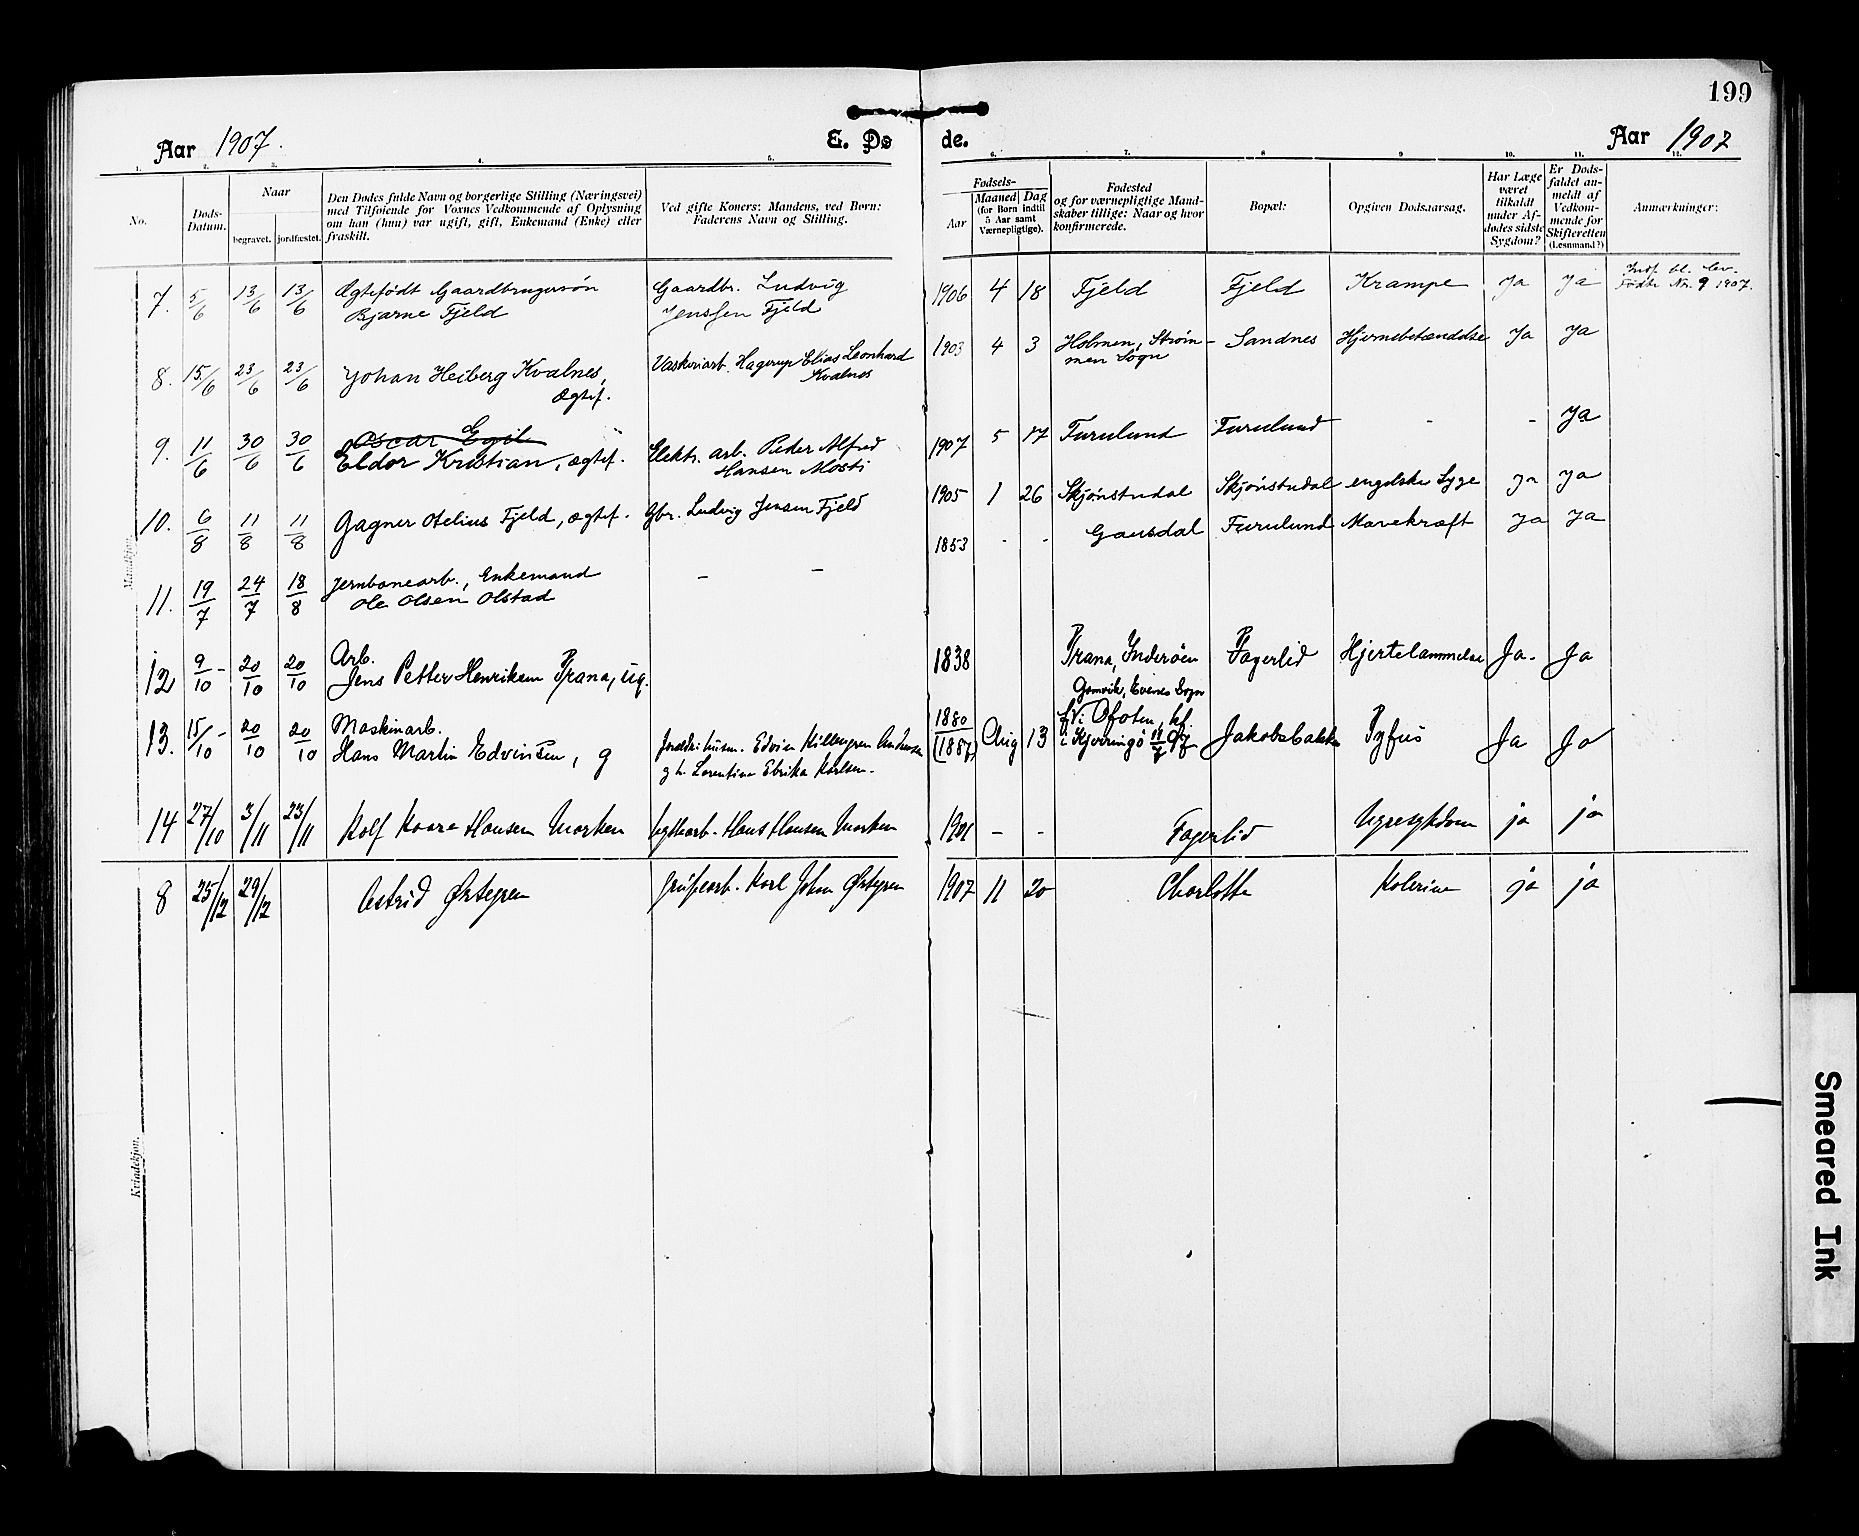 199
Aar 1907.
E. Dø
de.
Aar 1907
1. 2. 3. 4. 5. 6. 7. 8 9 10. 11. 12.
No.
Døds-
Datum.
Naar
begravet. jordfæstet.
Den Dødes fulde Navn og borgerlige Stilling (Næringsvei)
med Tilføiende for Voxnes Vedkommende af Oplysning
om han (hun) var ugift, gift, Enkemand (Enke) eller
fraskilt.
Ved gifte Koners: Mandens, ved Børn:
Faderens Navn og Stilling.
Fødsels-
Aar
Maaned Dag
(for Børn indtil
5 Aar samt
Værnepligtige).
Fødested
og for værnepligtige Mand-
skaber tillige: Naar og hvor
konfirmerede.
Bopæl:
Opgiven Dødsaarsag.
Har Læge
været
tilkaldt
under Af-
dødes sidste
Sygdom?
Er Døds-
faldet an-
meldt af
Vedkom-
mende for
Skifteretten
(Lensmand?)
Anmærkninger:
Mandkjøn.
7. 5/6 13/6 13/6 Ægtefødt Gaardbrugersøn Gaardbr. Ludvig 1906 4 18 Fjeld Fjeld Krampe Ja Ja Indf. bl. lev.
Bjarne Fjeld Jenssen Fjeld Fødte Nr. 9 1907.
8. 15/6 23/6 23/6 Johan Heiberg Kvalnes, Vaskeriarb. Hagerup Elias Leonhard 1903 4 3 Holmen, Strøm- Sandnes Hjernebetændelse Ja Ja
Ægtef. Kvalnes men Sogn
9. 11/6 30/6 30/6 Oscar Egil
Eldor Kristian, ægtef. Elektr. arb. Peder Alfred 1907 5 17 Furulund Furulund - - Ja
Hansen Mosti
10. 6/8 11/8 11/8 Gagner Otelius Fjeld, ægtef. Gbr. Ludvig Jensen Fjeld 1905 1 26 Skjønstudal Skjønstudal engelske Syge Ja Ja
11. 19/7 24/7 18/8 Jernbanearb., Enkemand - - 1853 - - Gausdal Furulund Mavekræft Ja Ja
Ole Olsen Olstad
12 9/10 - 20/10 20/10 Arb.
Jens Petter Henriksen Trana, ug. 1838 Trana, Inderøen Fagerlid Hjertelammelse Ja. Ja
13. 15/10 - 20/10 20/10 Maskinarb.
Hans Martin Edvinsen, g 1880 (1887) Aug 13 Evenes Sogn
i Ofoten, kf.
i Kjerringø Jakobsbakke Tyfus Ja Ja
14 27/10 3/11 23/11 Rolf Kaare Hansen Morken Hans Hansen Morken 1901 - - Fagerlid Nyresykdom ja ja
Kvindekjøn.
8 25/12 29/12 Astrid Østgren Grubearb. Karl John Østgren 1907 11 20 Charlotta Kolerine ja ja
Smeared Ink